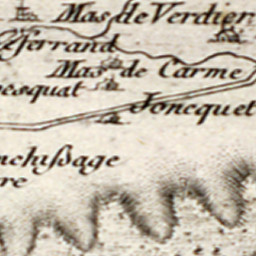 Mas de Verdier
ferrand
Mas de Carme
esquat
Joncquet
nchißage
re